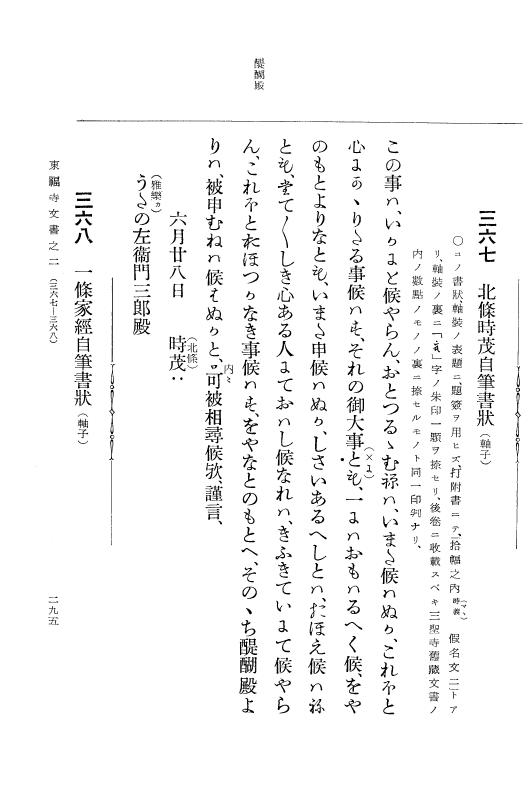 醍醐殿
三六七　北條時茂自筆書狀（軸子）
○コノ書狀軸裝ノ表題ニ題簽ヲ用ヒズ打附書ニテ、「拾幅之內時義（マヽ）假名文二」トア
リ、軸裝ノ裏ニ「」字ノ朱印一顆ヲ捺セリ、後卷ニ收載スベキ三聖寺舊藏文書ノ
內ノ數點ノモノノ裏ニ捺セルモノト同一印判ナリ、
この事ハ、いかまと候やらん、おとつるゝむ祢ハ、いまた候ハぬか、これ本と
心よかゝりたる事候ハも、それの御大事とも（×よ）、一よハおもハるへく候、をや
のもとよりなとも、いまた申候ハぬか、しさいあるへしとハ、おほえ候ハ祢
とも、堂て〱しき心ある人まておハし候なれハ、きふきていまて候やら
ん、これ本とおほつかなき事候ハも、をやなとのもとへ、そのゝち醍醐殿よ
りハ、被申むねハ候えぬかと、內〻可被相尋候歟、謹言、
六月廿八日　時茂（北條）：
うたの（雅樂カ）左衞門三郎殿
三六八　一條家經自筆書狀（軸子）
東福寺文書之二（三六七—三六八）
二九五